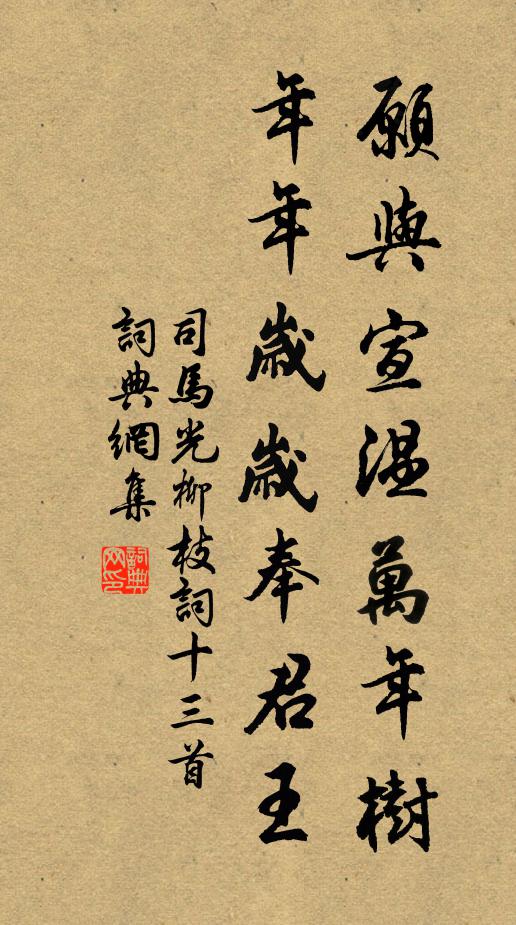 願與宣温萬年樹
年年歲歲奉君王
司馬光柳枝詞十三首
詞典網集
詞典网印